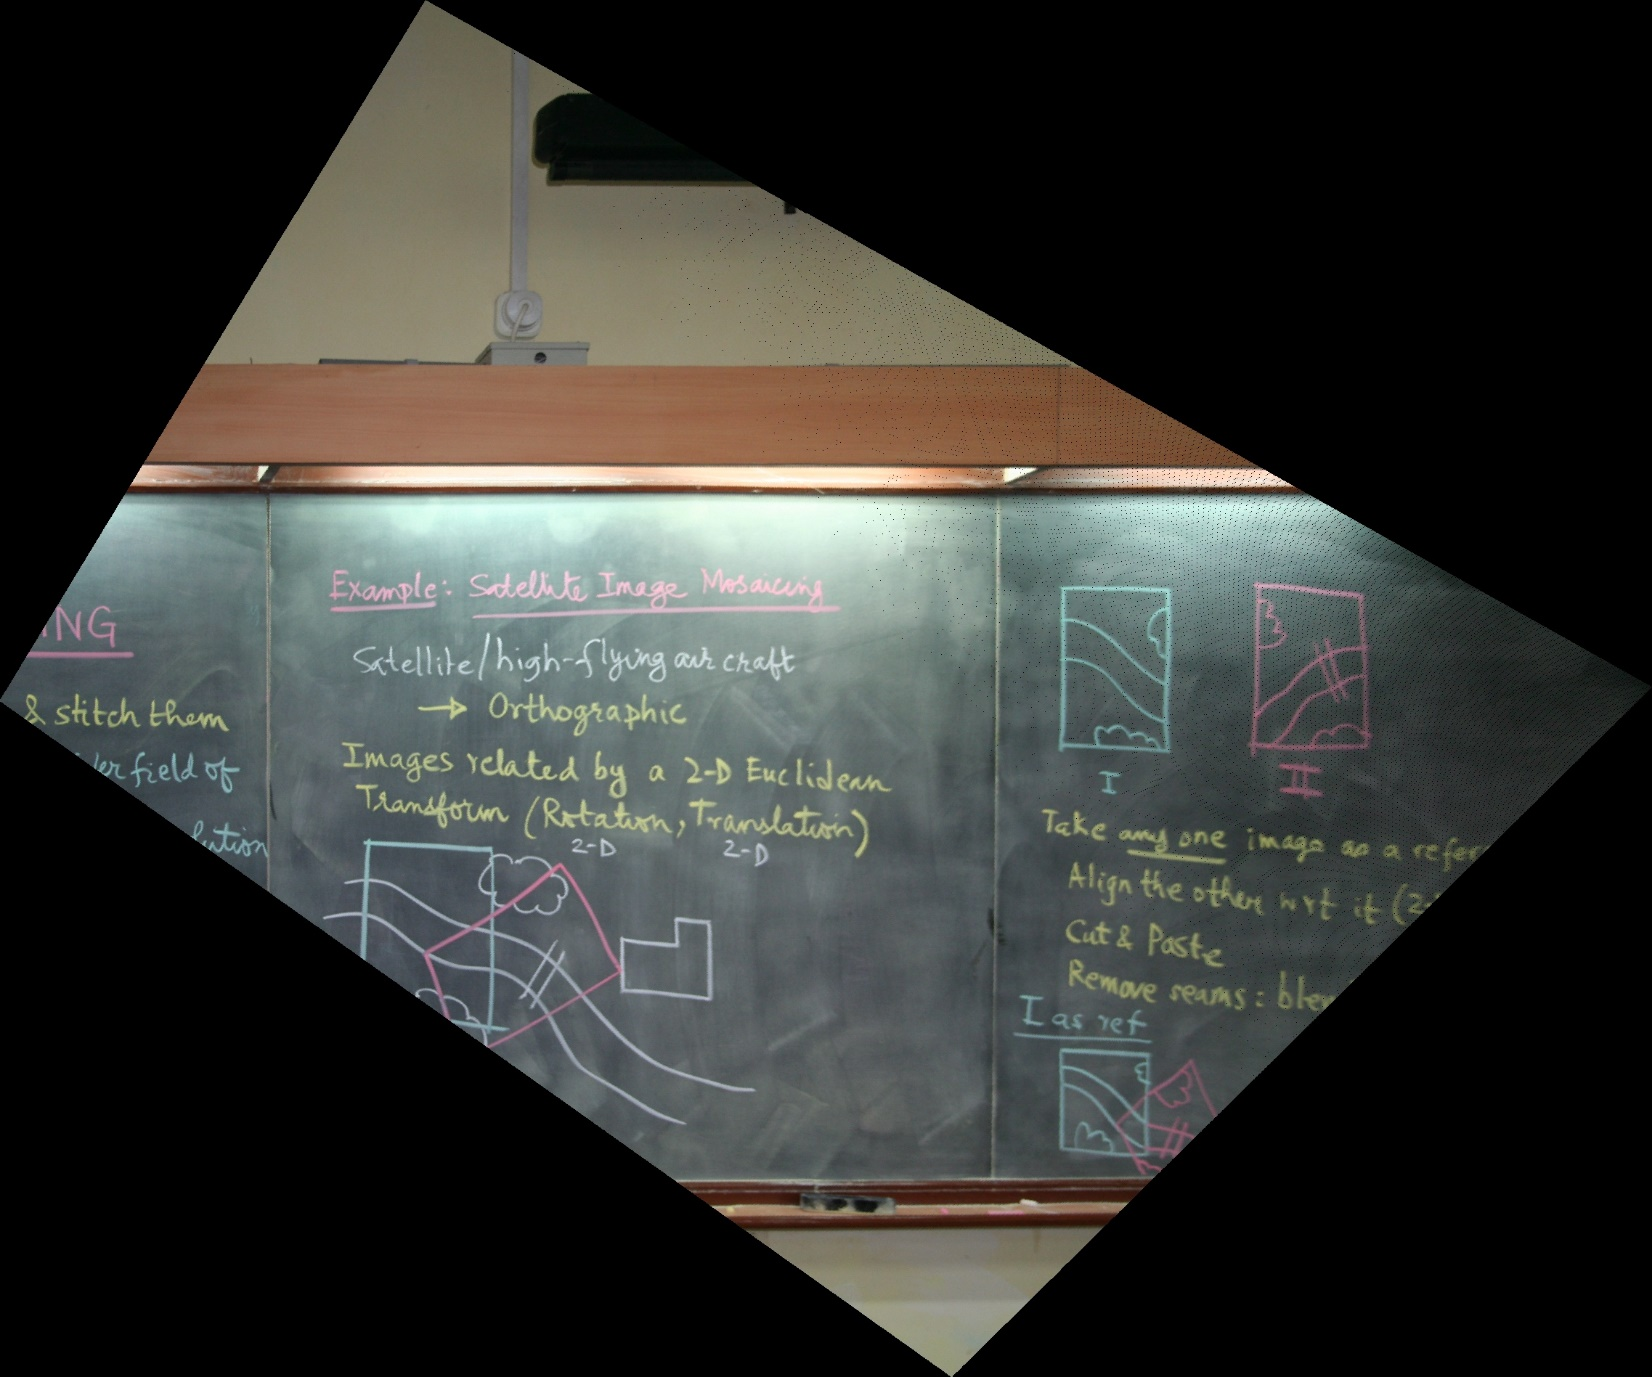 NG
& stitch them
field of
Example: Satellite Image Mosaicing
Satellite/high-flying aircraft
→ Orthographic
Images related by a 2-D Euclidean
Transform (Rotation, Translation)
2-D 2-D
I II
Take any one image as a refer
Align the other wrt it (2-
Cut & Paste
Remove seams: blen
I as ref